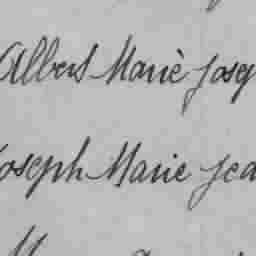 Albert Marie Josep
Joseph Marie Jea